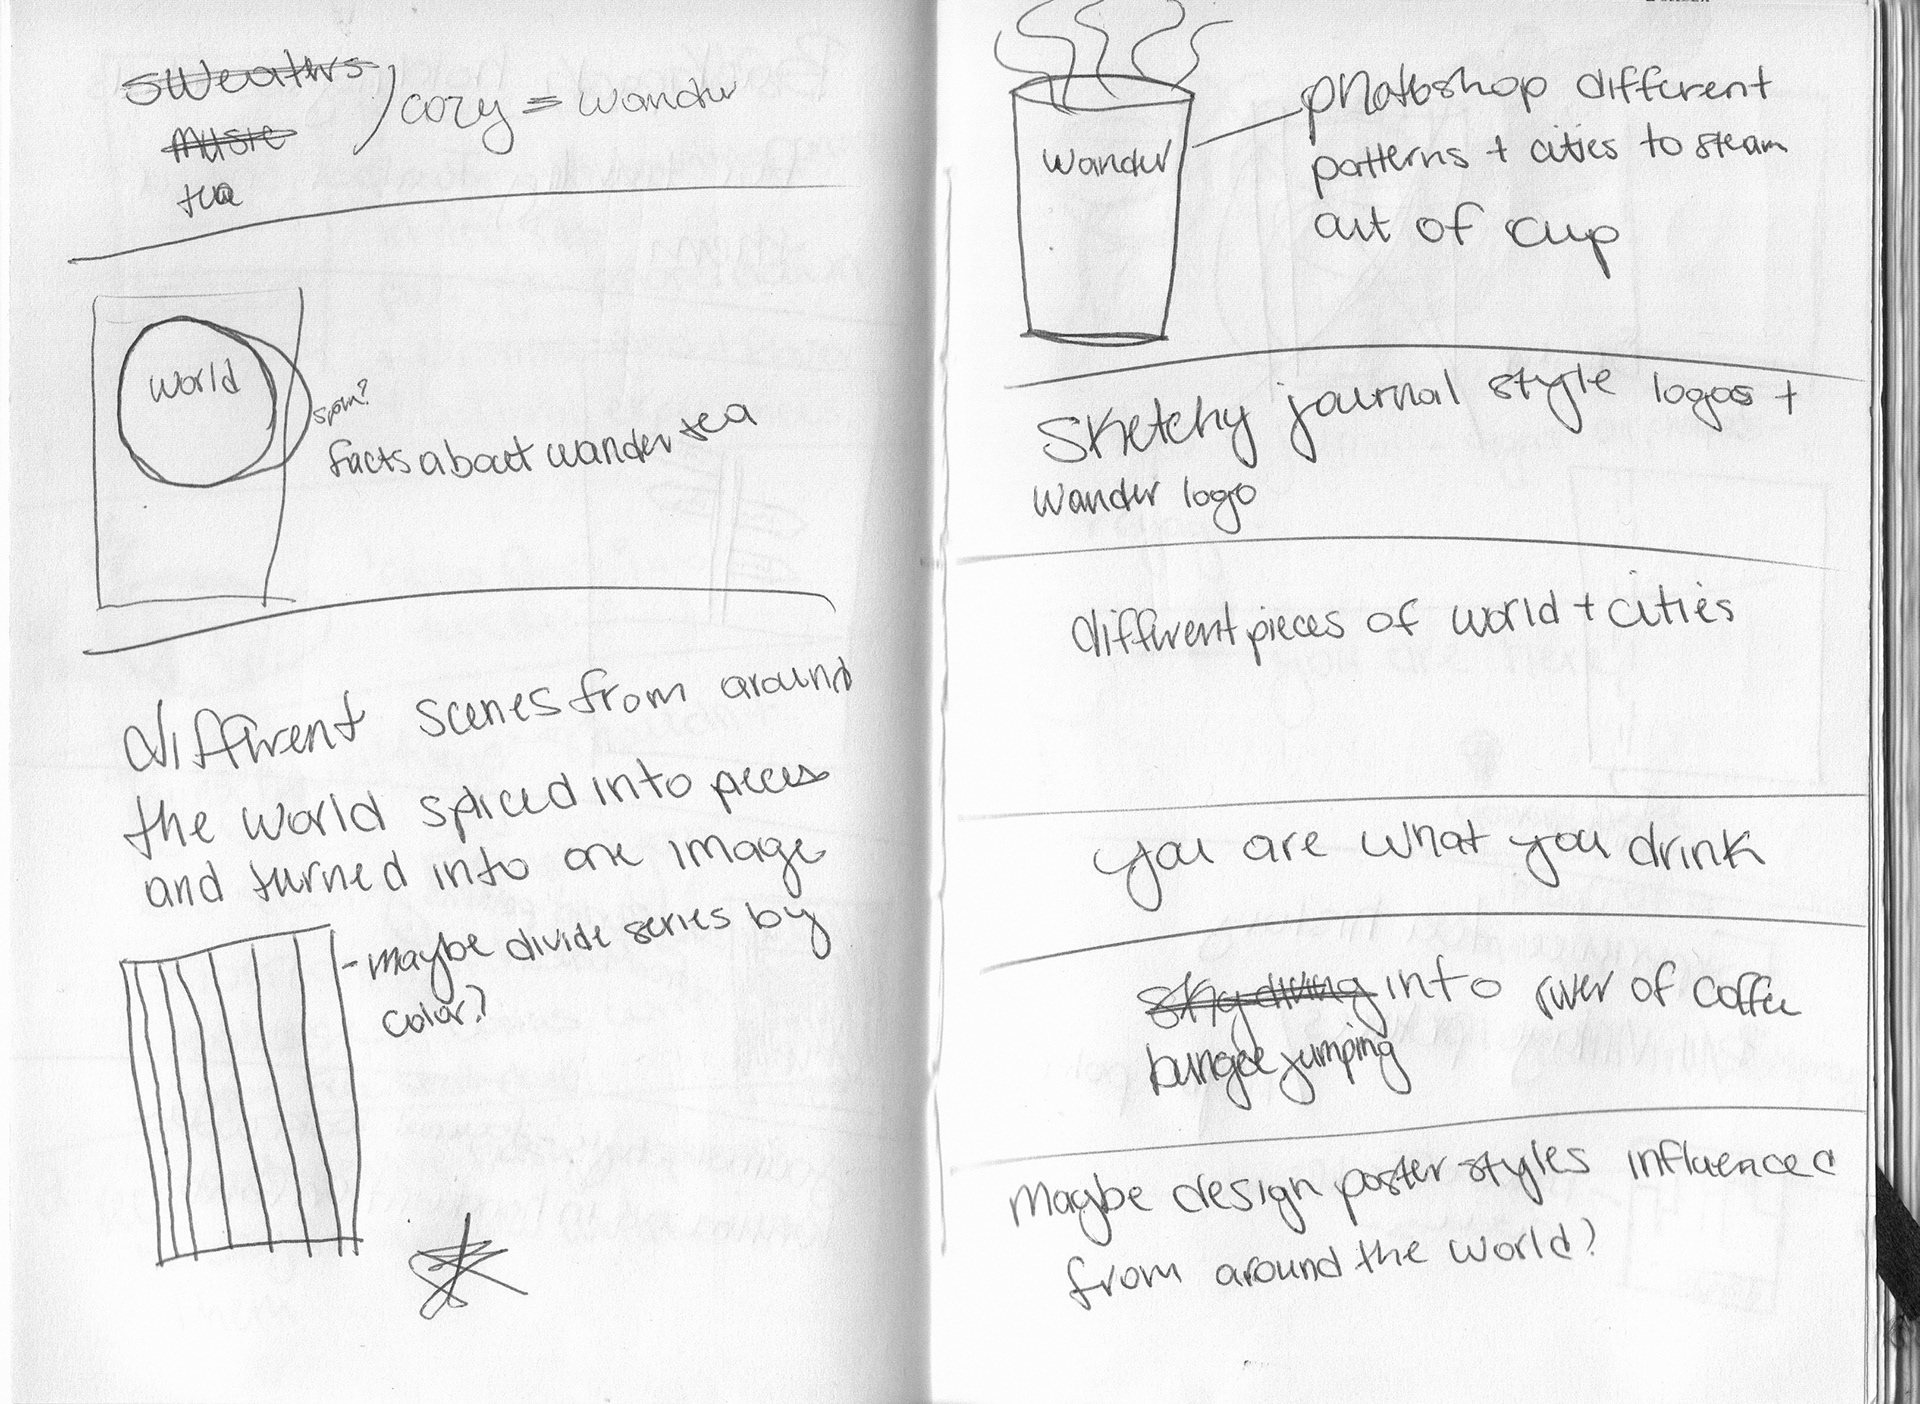 sweaters
music
tea
cozy = wander
world
spin?
facts about wander tea
different scenes from around
the world spliced into pieces
and turned into one image
- maybe divide series by
color?
wander
photoshop different
patterns + cities to steam
out of cup
Sketchy journal style logos +
wander logo
different pieces of world + cities
you are what you drink
sky diving into river of coffee
bungee jumping
Maybe design poster styles influenced
from around the world?